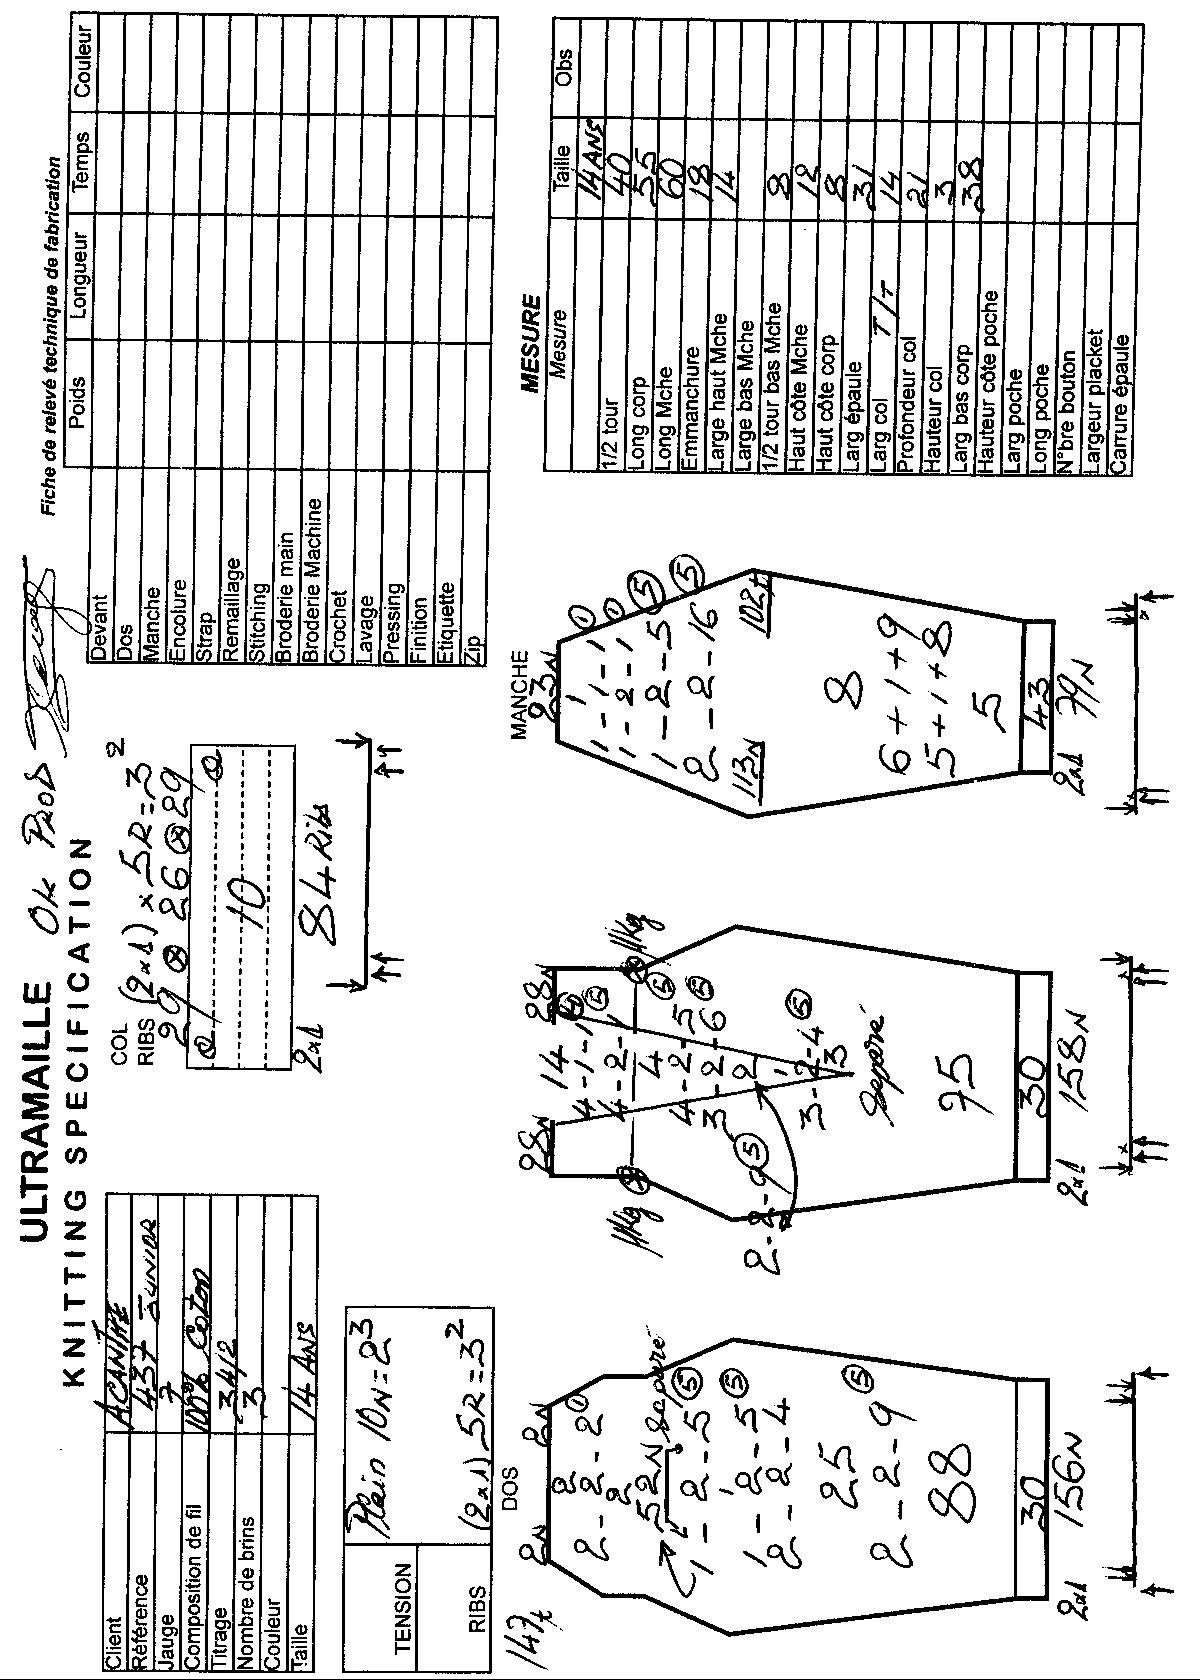 ULTRAMAILLE OK PROD
KNITTING SPECIFICATION
Client ACANTHE
Référence 437 JUNIOR
Jauge 7
Composition de fil 100% COTON
Titrage 34/2
Nombre de brins 3
Couleur
Taille 14 ANS
TENSION Plain 10N=2³
RIBS (2x1) 5R=3²
COL
RIBS (2x1) x 5R=3²
29 ⊗ 26 ⊗ 29
10
2x1 84 Ribs
Fiche de relevé technique de fabrication
Poids Longueur Temps Couleur
Devant
Dos
Manche
Encolure
Strap
Remaillage
Stitching
Broderie main
Broderie Machine
Crochet
Lavage
Pressing
Finition
Etiquette
Zip
147t
DOS
2N 2N
2
2-2-2 ①
2
52N Separé
1-2-5 ⑤
1
1-2-5 ⑤
2-2-4
25
2-2-9 ⑤
88
30
2x1 156N
28N 28N
14
4-1-1
4-2-1 ⑤
11Kg 11Kg
4
4-2-5 ⑤
3-2-6 ⑤
2
2-2-9 ⑤
1
3-2-4 ⑤
3
Separé
75
30
2x1 158N
MANCHE
23N
1
1-1-1 ①
1-2-1 ①
1-2-5 ⑤
2-2-16 ⑤
113N 102t
8
6+1+9
5+1+8
5
43
2x1 79N
MESURE
Mesure Taille Obs
14 ANS
1/2 tour 40
Long corp 55
Long Mche 60
Emmanchure 18
Large haut Mche 14
Large bas Mche
1/2 tour bas Mche 8
Haut côte Mche 12
Haut côte corp 8
Larg épaule 31
Larg col T/T 14
Profondeur col 21
Hauteur col 3
Larg bas corp 38
Hauteur côte poche
Larg poche
Long poche
N°bre bouton
Largeur placket
Carrure épaule